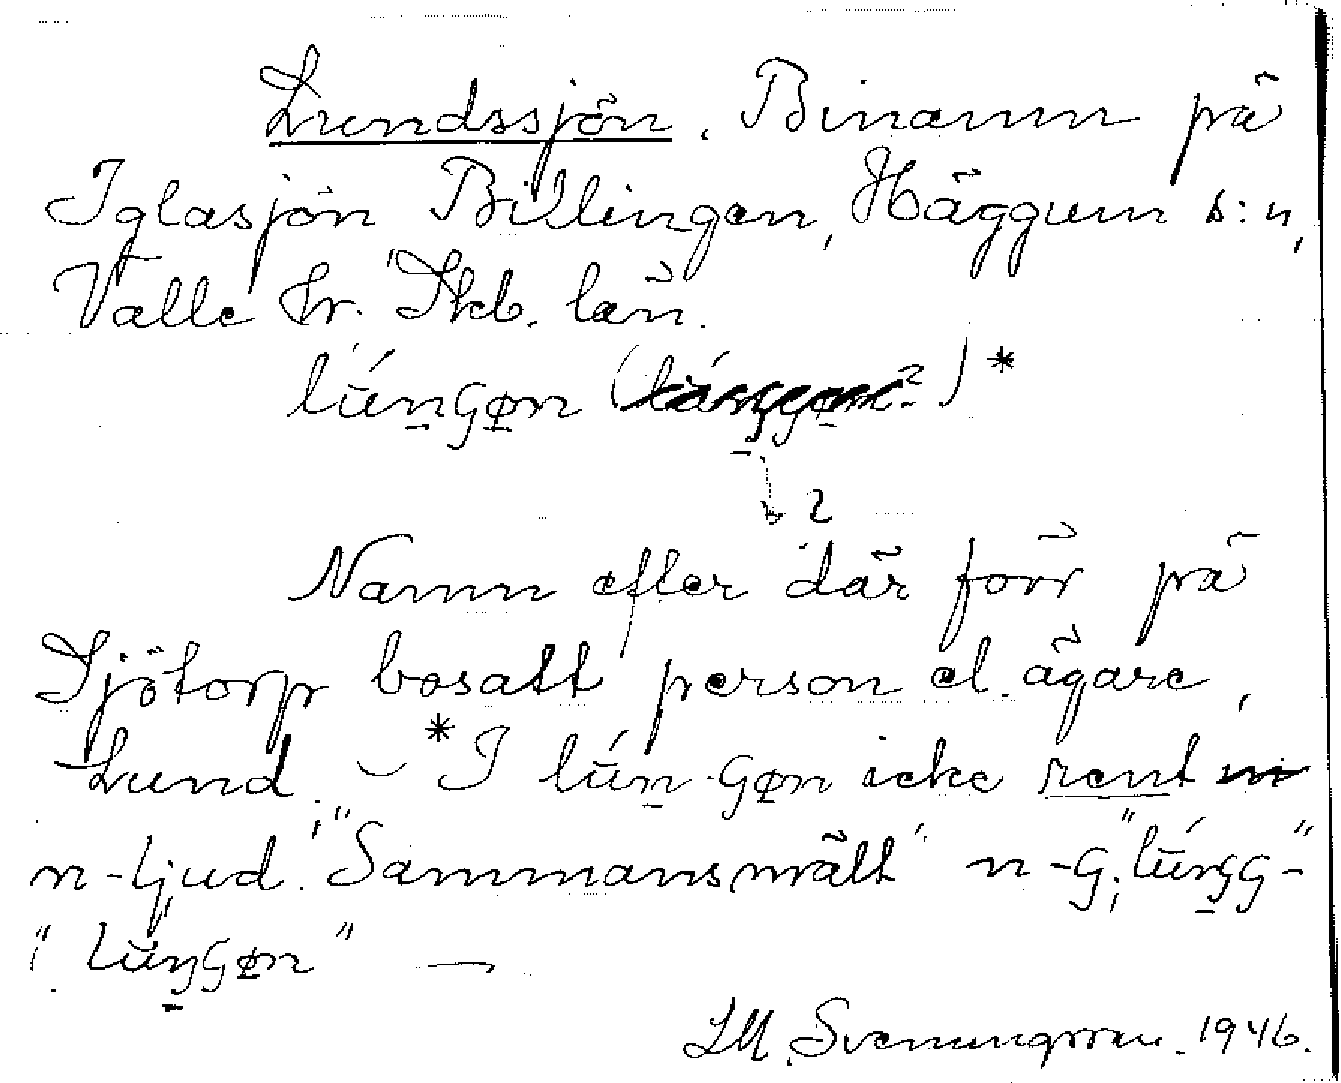 Lundssjön. Binamn på
Iglasjön Billingen, Häggum s:n,
Valle hr. Skb. län.
lúngøn ( ? ) *
2
Namn efter där förr på
Sjötorp bosatt person el. ägare,
Lund. – * I lún-gøn icke rent
n-ljud. "Sammansmält" n-g; "lúngg-"
"lúngøn" —
LM. Svenungsson. 1946.